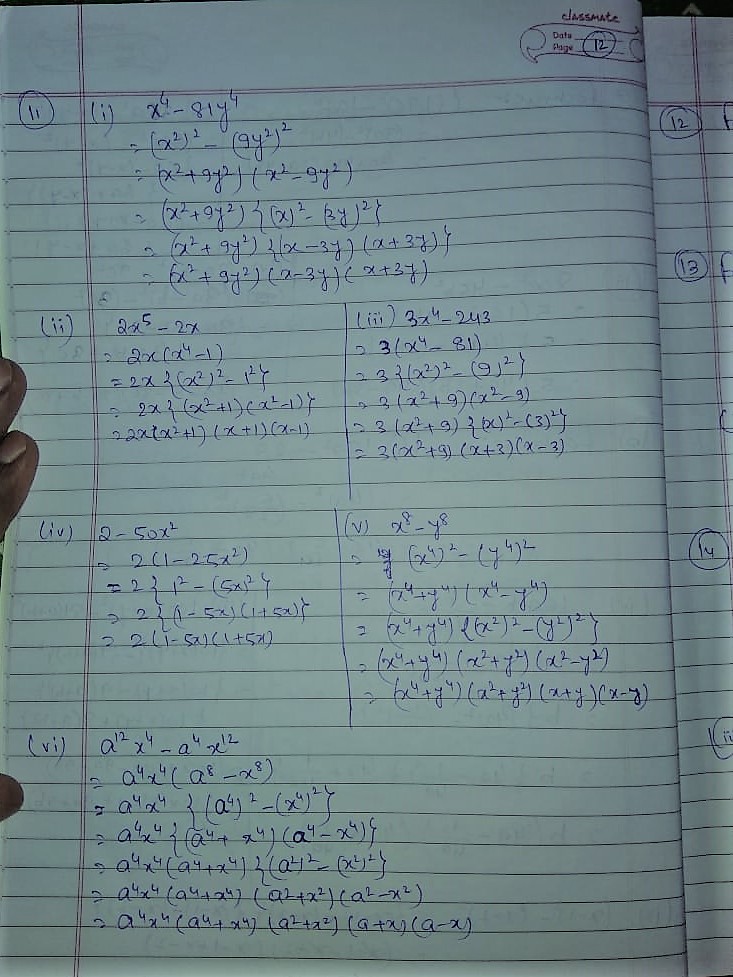 classmate
Date
Page 12
11 (i) x⁴ - 81y⁴
= (x²)² - (9y²)²
= (x²+9y²) (x² - 9y²)
= (x²+9y²) {(x)² - (3y)²}
= (x² + 9y²) {(x - 3y) (x + 3y)}
= (x² + 9y²) (x - 3y) (x + 3y)
(ii) 2x⁵ - 2x
= 2x(x⁴ - 1)
= 2x {(x²)² - 1²}
= 2x {(x²+1) (x² - 1)}
= 2x(x²+1) (x+1) (x-1)
(iii) 3x⁴ - 243
= 3(x⁴ - 81)
= 3 {(x²)² - (9)²}
= 3 (x² + 9) (x² - 9)
= 3 (x² + 9) {(x)² - (3)²}
= 3(x² + 9) (x+3) (x - 3)
(iv) 2 - 50x²
= 2(1 - 25x²)
= 2 { 1² - (5x)² }
= 2 {(1 - 5x) (1 + 5x)}
= 2 (1 - 5x) (1 + 5x)
(v) x⁸ - y⁸
= (x⁴)² - (y⁴)²
= (x⁴ + y⁴) (x⁴ - y⁴)
= (x⁴ + y⁴) {(x²)² - (y²)²}
= (x⁴ + y⁴) (x² + y²) (x² - y²)
= (x⁴ + y⁴) (x² + y²) (x + y) (x - y)
(vi) a¹² x⁴ - a⁴ x¹²
= a⁴x⁴ (a⁸ - x⁸)
= a⁴x⁴ {(a⁴)² - (x⁴)²}
= a⁴x⁴ {(a⁴ + x⁴) (a⁴ - x⁴)}
= a⁴x⁴ (a⁴ + x⁴) {(a²)² - (x²)²}
= a⁴x⁴ (a⁴ + x⁴) (a² + x²) (a² - x²)
= a⁴x⁴ (a⁴ + x⁴) (a² + x²) (a + x) (a - x)
12
13
14